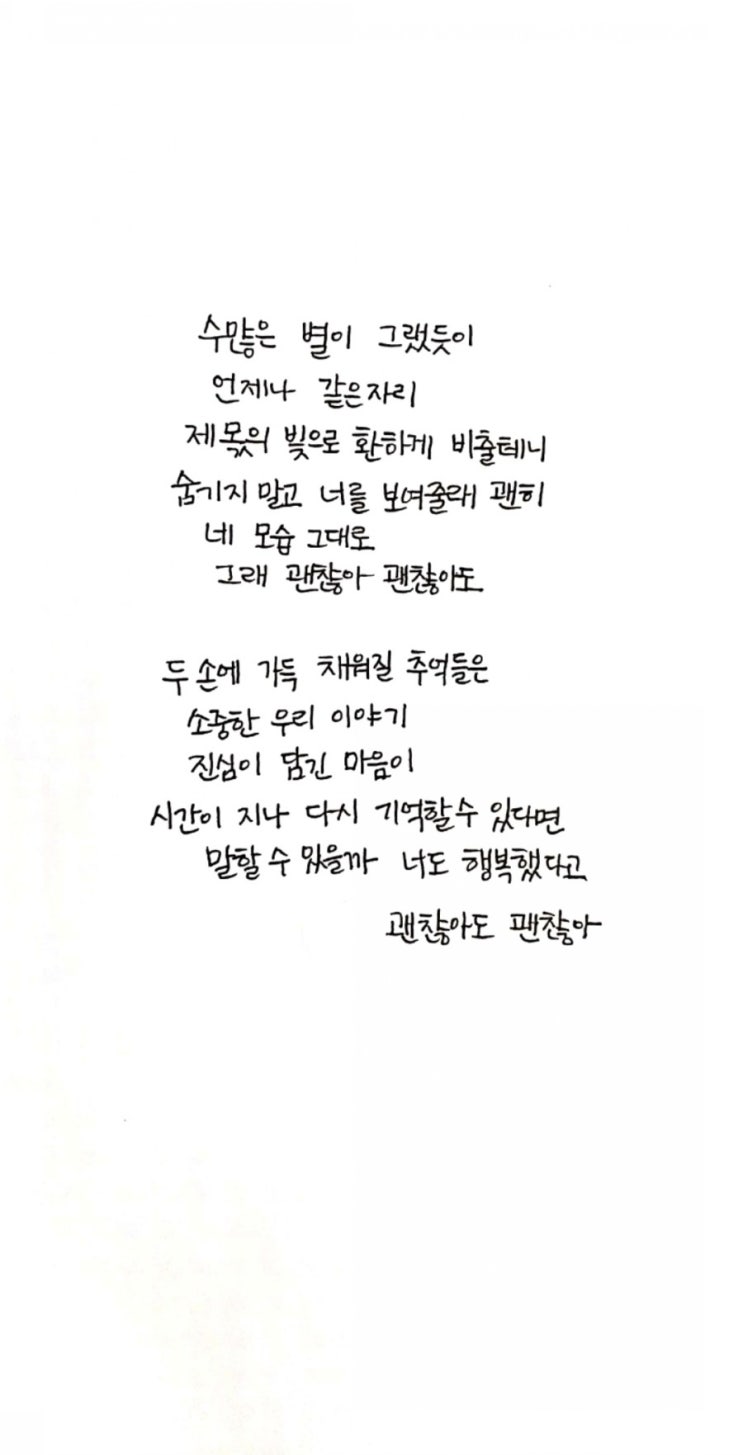 수많은 별이 그랬듯이
언제나 같은자리
제 몫의 빛으로 환하게 비출테니
숨기지 말고 너를 보여줄래 괜히
네 모습 그대로
그래 괜찮아 괜찮아도
두 손에 가득 채워질 추억들은
소중한 우리 이야기
진심이 담긴 마음이
시간이 지나 다시 기억할수 있다면
말할 수 있을까 너도 행복했다고
괜찮아도 괜찮아